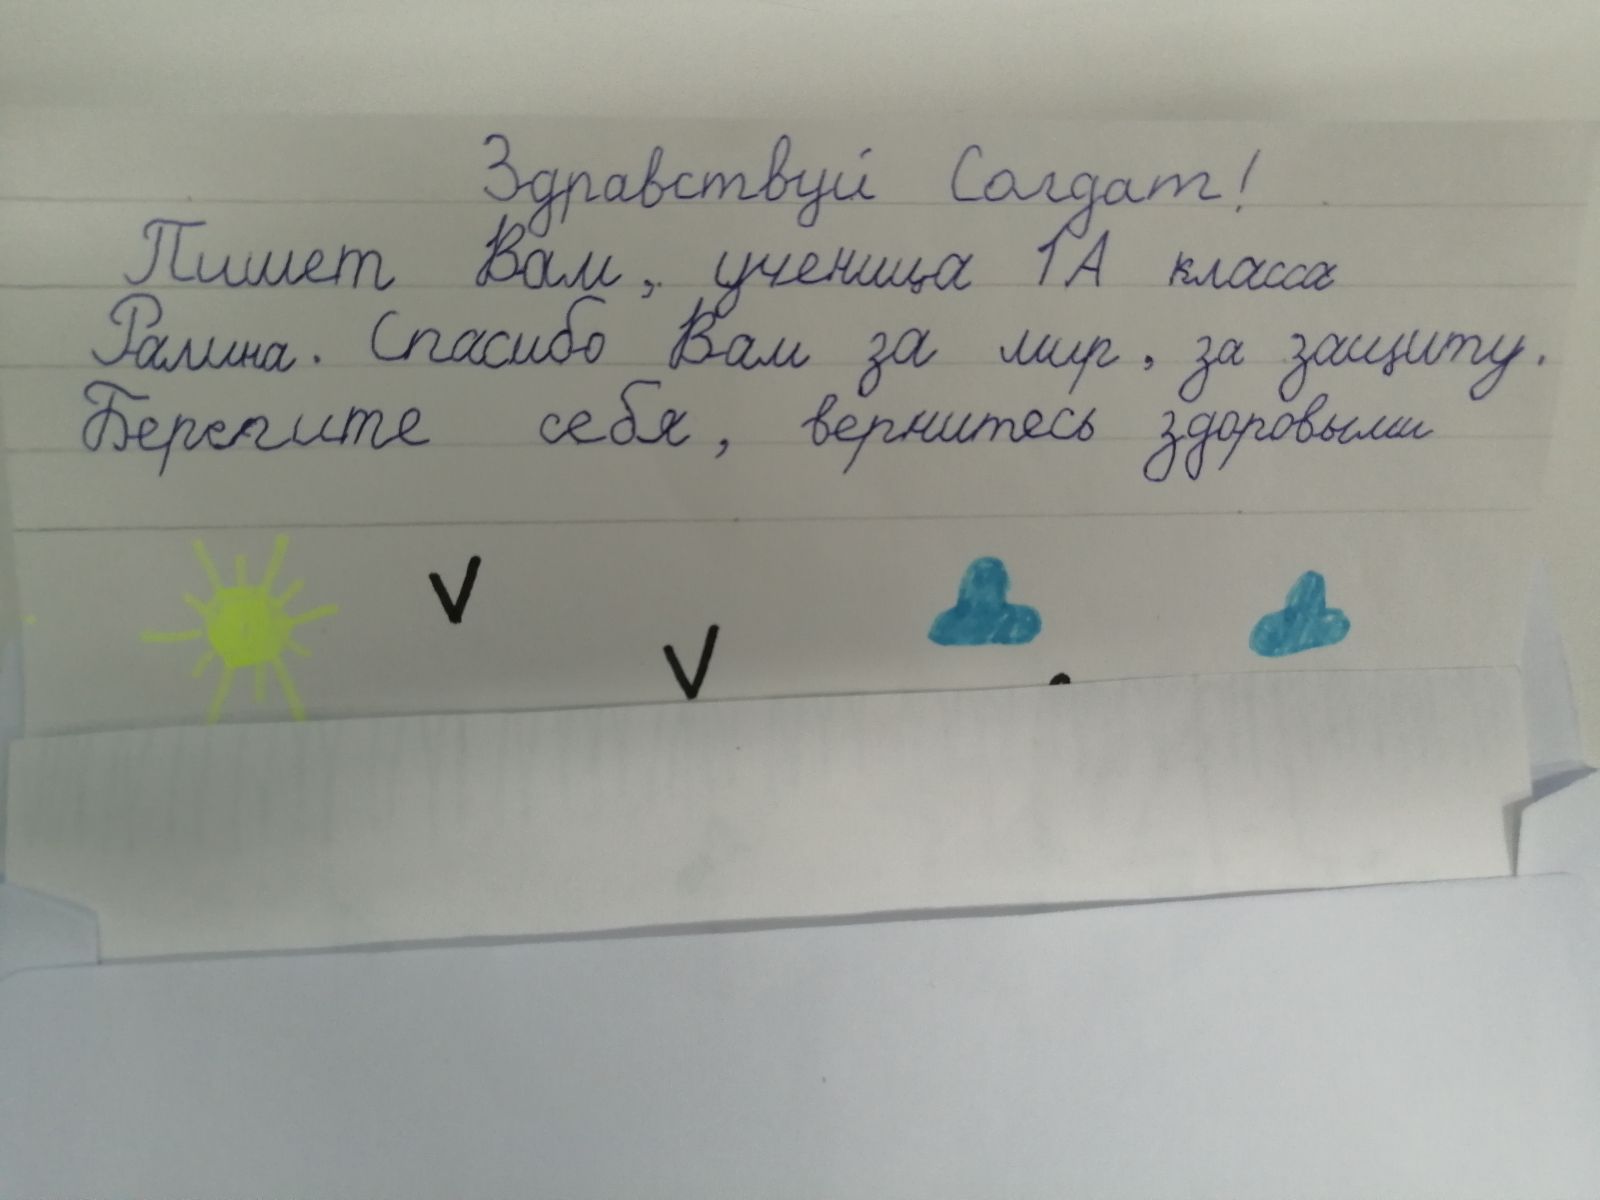 Здравствуй Солдат!
Пишет Вам, ученица 1А класса
Ралина. Спасибо Вам за мир, за защиту.
Берегите себя, вернитесь здоровыми